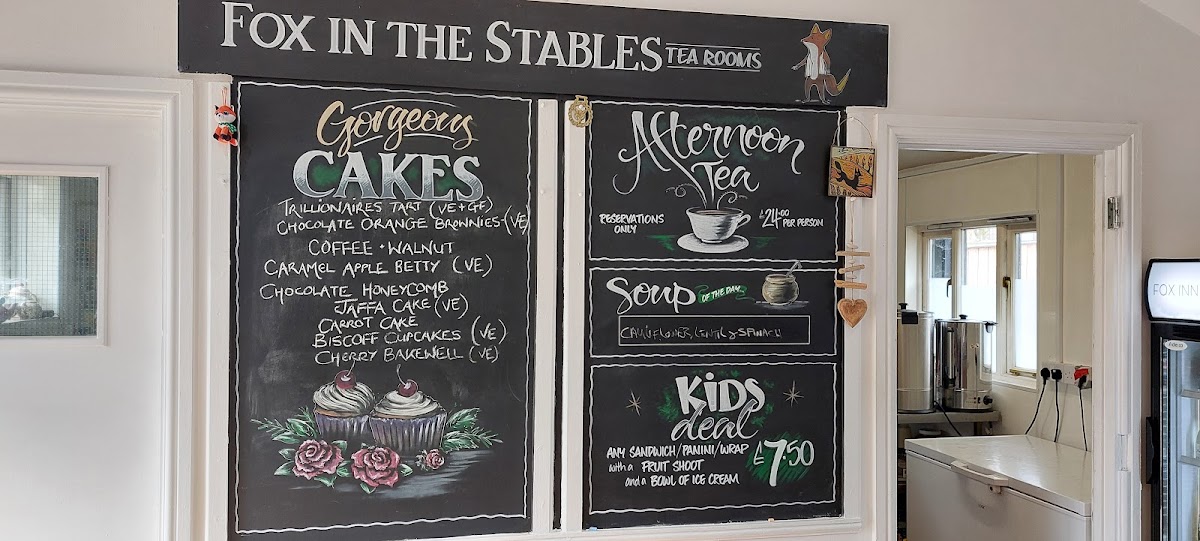 FOX IN THE STABLES TEA ROOMS
Gorgeous
CAKES
TRILLIONAIRES TART (VE+GF)
CHOCOLATE ORANGE BROWNIES (VE)
COFFEE + WALNUT
CARAMEL APPLE BETTY (VE)
CHOCOLATE HONEYCOMB
JAFFA CAKE (VE)
CARROT CAKE
BISCOFF CUPCAKES (VE)
CHERRY BAKEWELL (VE)
Afternoon
Tea
RESERVATIONS
ONLY
£24.00
PER PERSON
Soup OF THE DAY
CAULIFLOWER, LENTIL & SPINACH
KIDS
deal
ANY SANDWICH/PANINI/WRAP
with a FRUIT SHOOT
and a BOWL OF ICE CREAM
£7.50
FOX INN